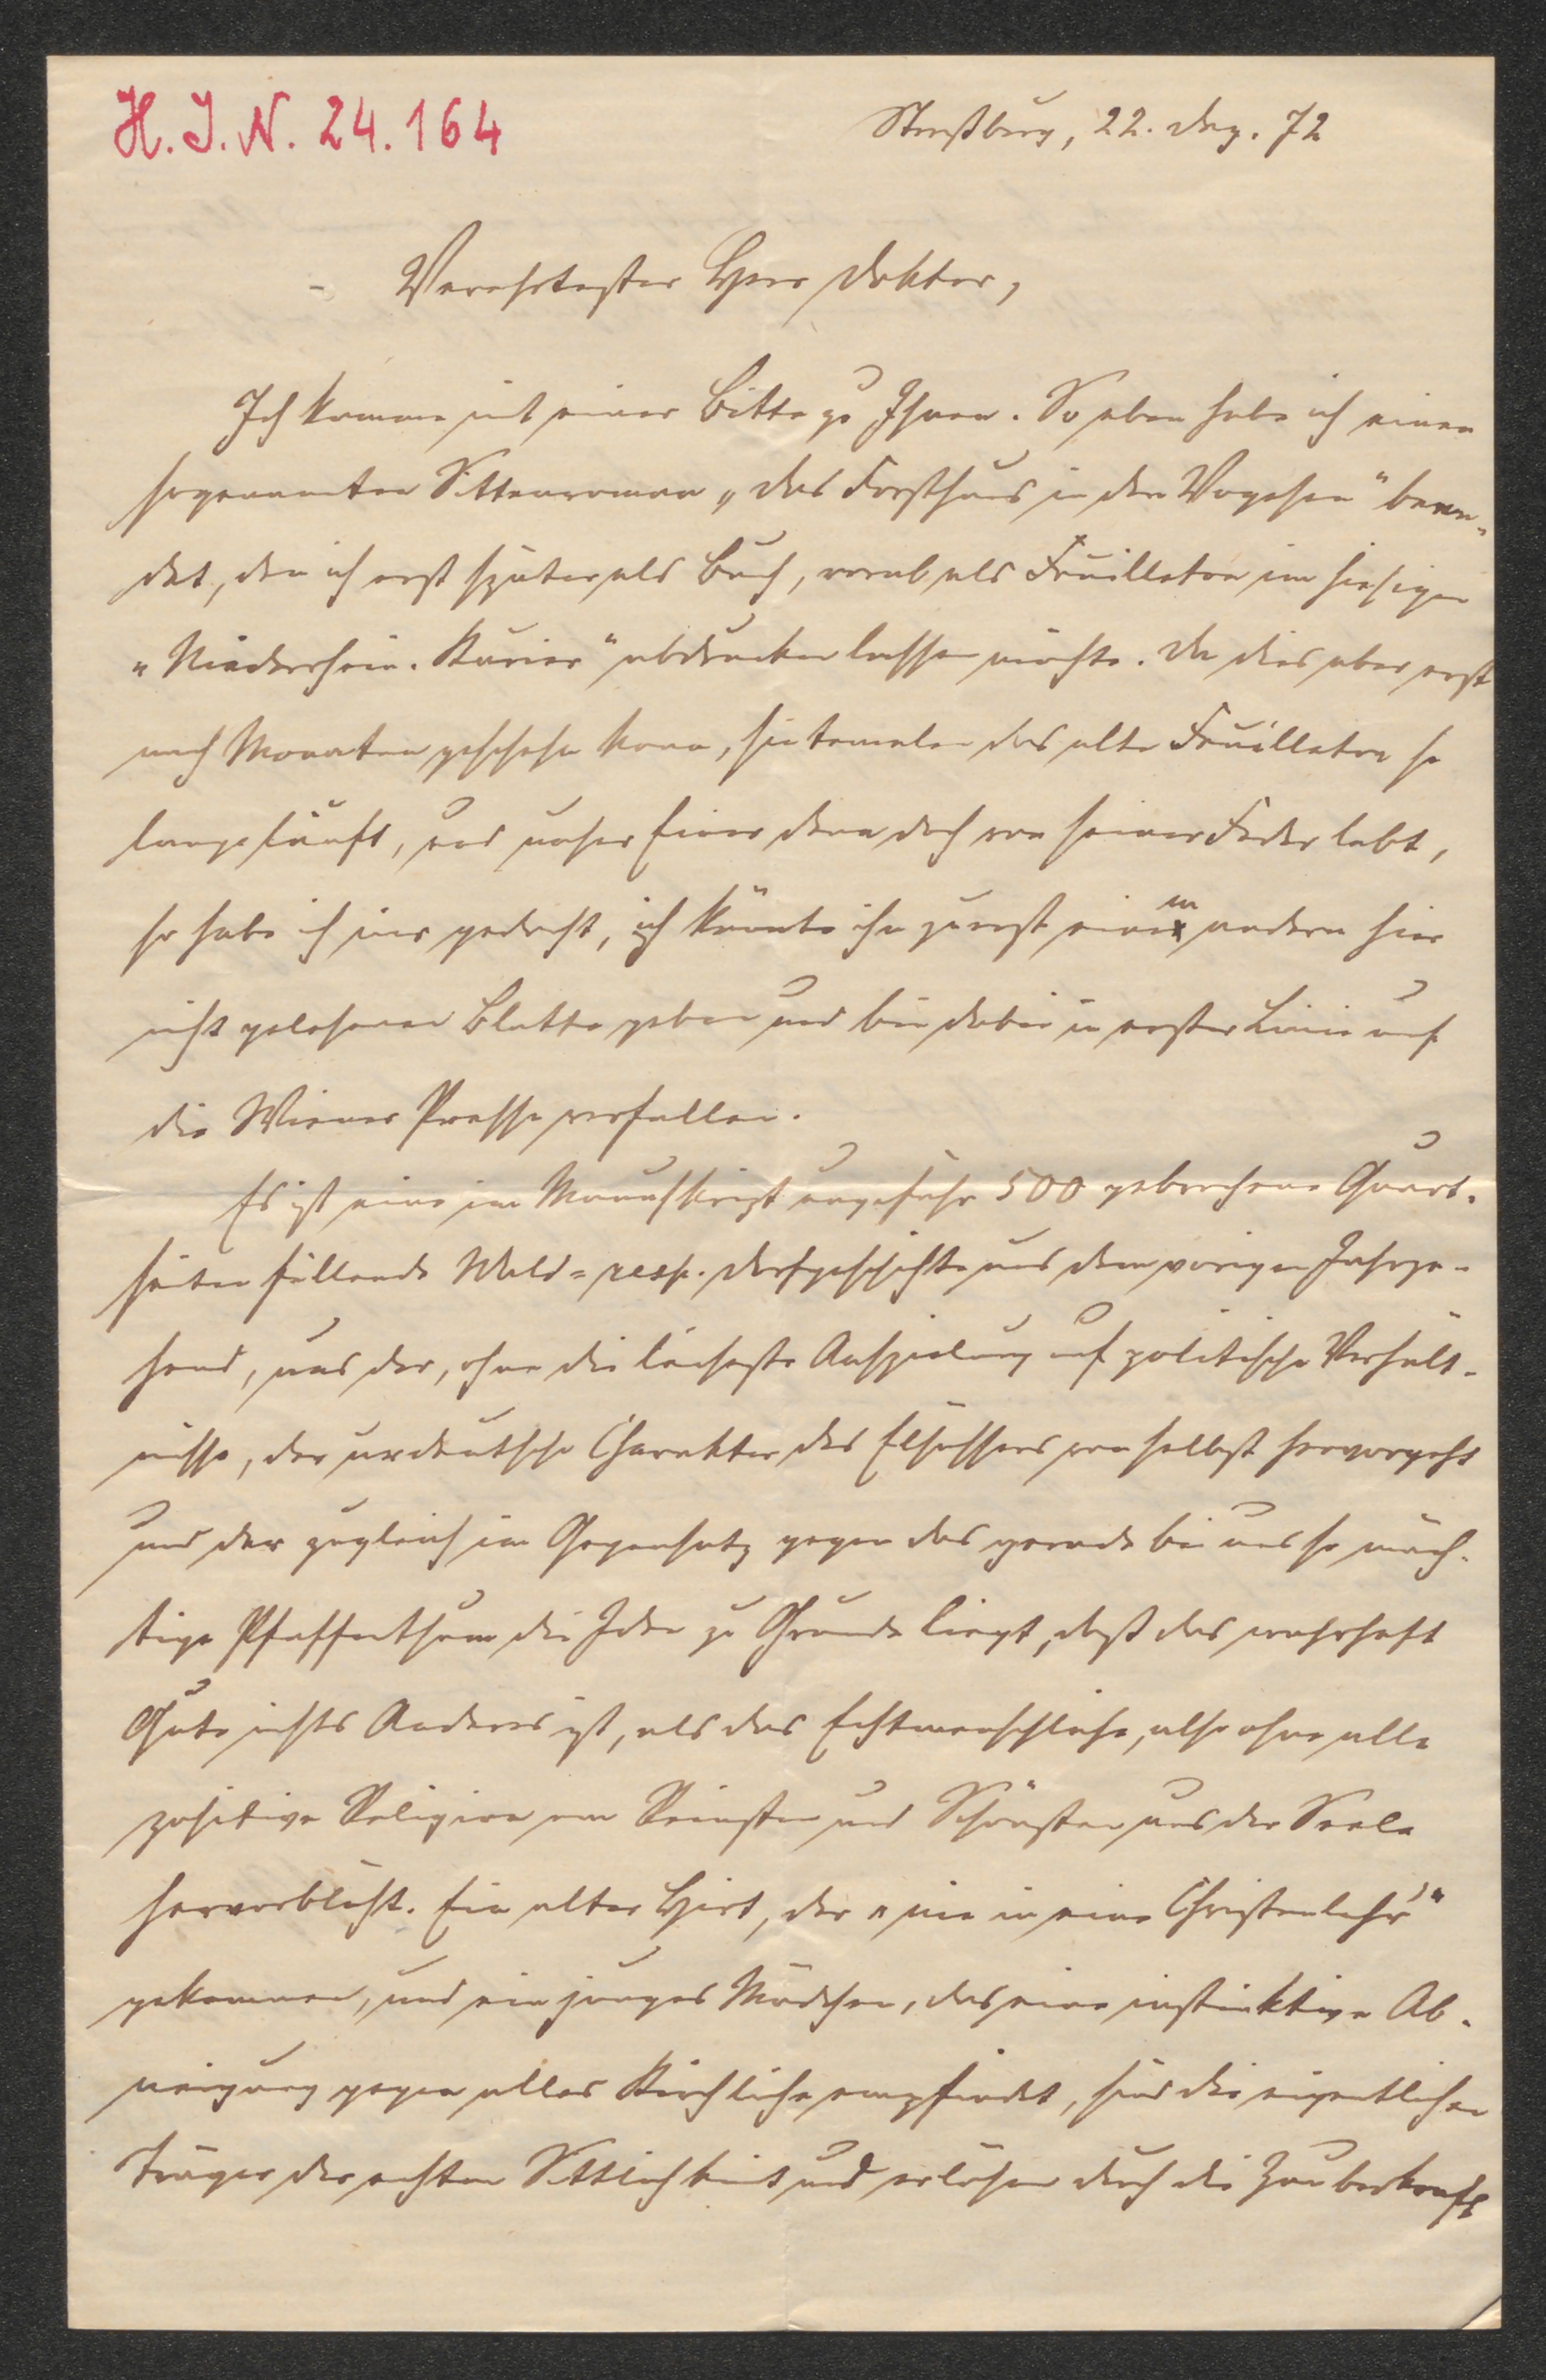 H. J. N. 24.164
Straßburg, 22. Dez. 72
Verehrtester Herr Doktor,
Ich komme mit einer Bitte zu Ihnen. So eben habe ich einen
sogenannten Sittenroman „Das Forsthaus in den Vogesen" been-
det, den ich erst später als Buch, vorab als Feuilleton im hiesigen
„Niederrhein. Kurier" abdrucken lassen möchte. Da dies aber erst
nach Monaten geschehen kann, sintemalen das alte Feuilleton so
lange läuft, und unser Einer denn doch von seiner Feder lebt,
so habe ich mir gedacht, ich könnte ihn zuerst einem andern hier
nicht gelesenen Blatte geben und bin dabei in erster Linie auf
die Wiener Presse verfallen.
Es ist eine im Manuskript ungefähr 500 gebrochene Quart-
seiten füllende Wald- resp. Dorfgeschichte aus dem vorigen Jahrze-
hend, aus der, ohne die leiseste Anspielung auf politische Verhält-
nisse, der urdeutsche Charakter des Elsässers von selbst hervorgeht
und der zugleich im Gegensatz gegen das gerade bei uns so mäch-
tige Pfaffenthum die Idee zu Grunde liegt, daß das wahrhaft
Gute nichts Anderes ist, als das Echtmenschliche, also ohne alle
positive Religion am Reinsten und Schönsten aus der Seele
hervorblüht. Ein alter Hirt, der „nie in eine Christenlehr'"
gekommen, und ein junges Mädchen, das eine instinktive Ab-
neigung gegen alles Kirchliche empfindet, sind die eigentlichen
Träger der echten Sittlichkeit und erlösen durch die Zauberkraft